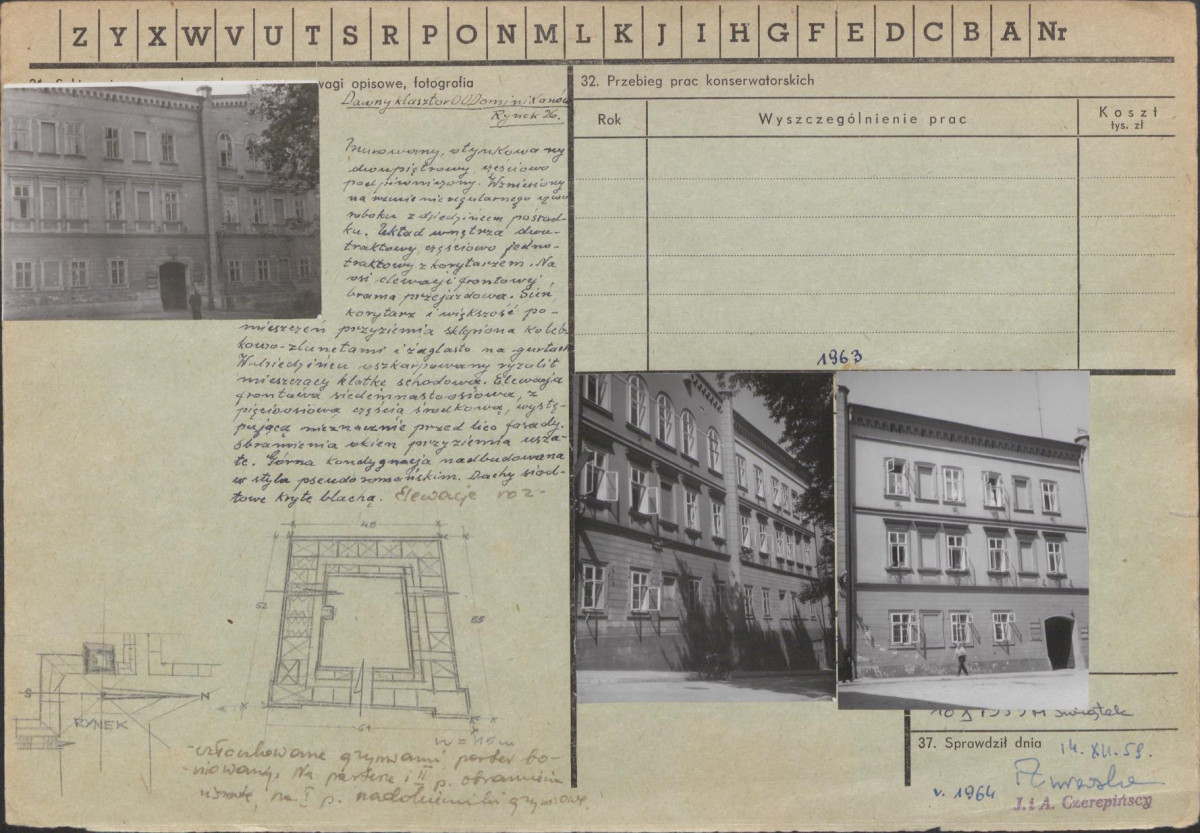 Z Y X W V U T S R P O N M L K J I H G F E D C B A Nr
wagi opisowe, fotografia
Dawny klasztor OO Dominikanów
Rynek 26.
Murowany, otynkowany
dwupiętrowy, częściowo
podpiwniczony. Wzniesiony
na rzucie nieregularnego czwo
roboku z dziedzińcem pośrod-
ku. Układ wnętrza dwu-
traktowy, częściowo jedno-
traktowy z korytarzem. Na
osi elewacji frontowej
brama przejazdowa. Sień
korytarz i większość po-
mieszczeń przyziemia sklepiona kolebk
kowo-z lunetami i żaglasto na gurtach
W dziedzińcu oszkarpowany ryzalit
mieszczący klatkę schodową. Elewacja
frontowa siedemnastoosiowa, z
pięcioosiową częścią środkową, wystę-
pującą nieznacznie przed lico fasady.
obramienia okien przyziemia usza-
te. Górna kondygnacja nadbudowana
w stylu pseudoromańskim. Dachy siod-
łowe kryte blachą. Elewacje roz-
48
52
55
64
S
N
RYNEK
-członkowane gzymsami, parter bo-
niowany. Na parterze i II p. obramienia
uszate, na I p. nadokienniki gzymsowe.
32. Przebieg prac konserwatorskich
Rok
Wyszczególnienie prac
Koszt
tys. zł
1963
Świątek
37. Sprawdził dnia
14. XII. 59.
v. 1964
J. i A. Czerepińscy